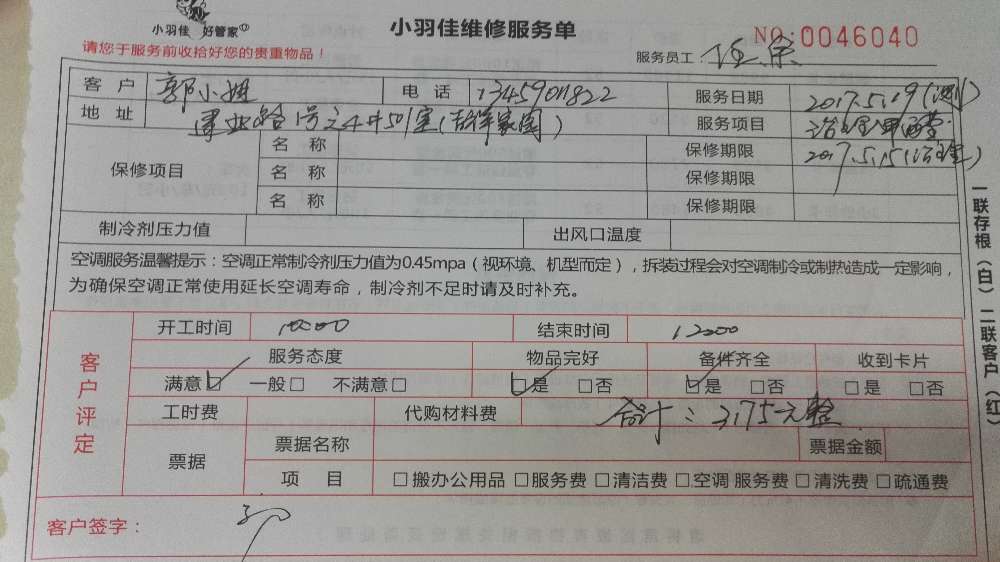 小羽佳 好管家
小羽佳维修服务单
NO:0046040
请您于服务前收拾好您的贵重物品！
服务员工：
客 户 郭小姐 电 话 13459011822 服务日期 2017.5.19
地 址 事业路1号之4中501室(吉祥家园) 服务项目
保修项目 名 称 保修期限 2017.5.15
名 称 保修期限
名 称 保修期限
制冷剂压力值 出风口温度
空调服务温馨提示：空调正常制冷剂压力值为0.45mpa（视环境、机型而定），拆装过程会对空调制冷或制热造成一定影响，
为确保空调正常使用延长空调寿命，制冷剂不足时请及时补充。
一联存根（白）二联客户（红）
客户评定
开工时间 10:00 结束时间 12:00
服务态度 物品完好 备件齐全 收到卡片
满意☑ 一般□ 不满意□ ☑是 □否 ☑是 □否 □是 □否
工时费 代购材料费 合计：3175元整
票据 票据名称 票据金额
项 目 □搬办公用品 □服务费 □清洁费 □空调 服务费 □清洗费 □疏通费
客户签字：